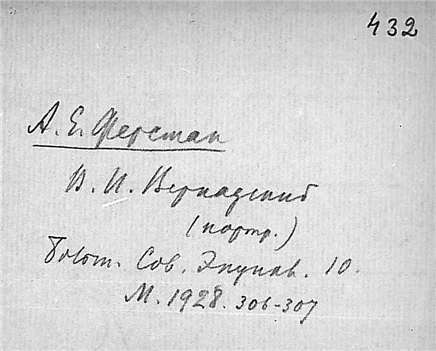 432
А. Е. Ферсман
В. И. Вернадский
(портр.)
Больш. Сов. Энцикл. 10.
М. 1928. 306-307